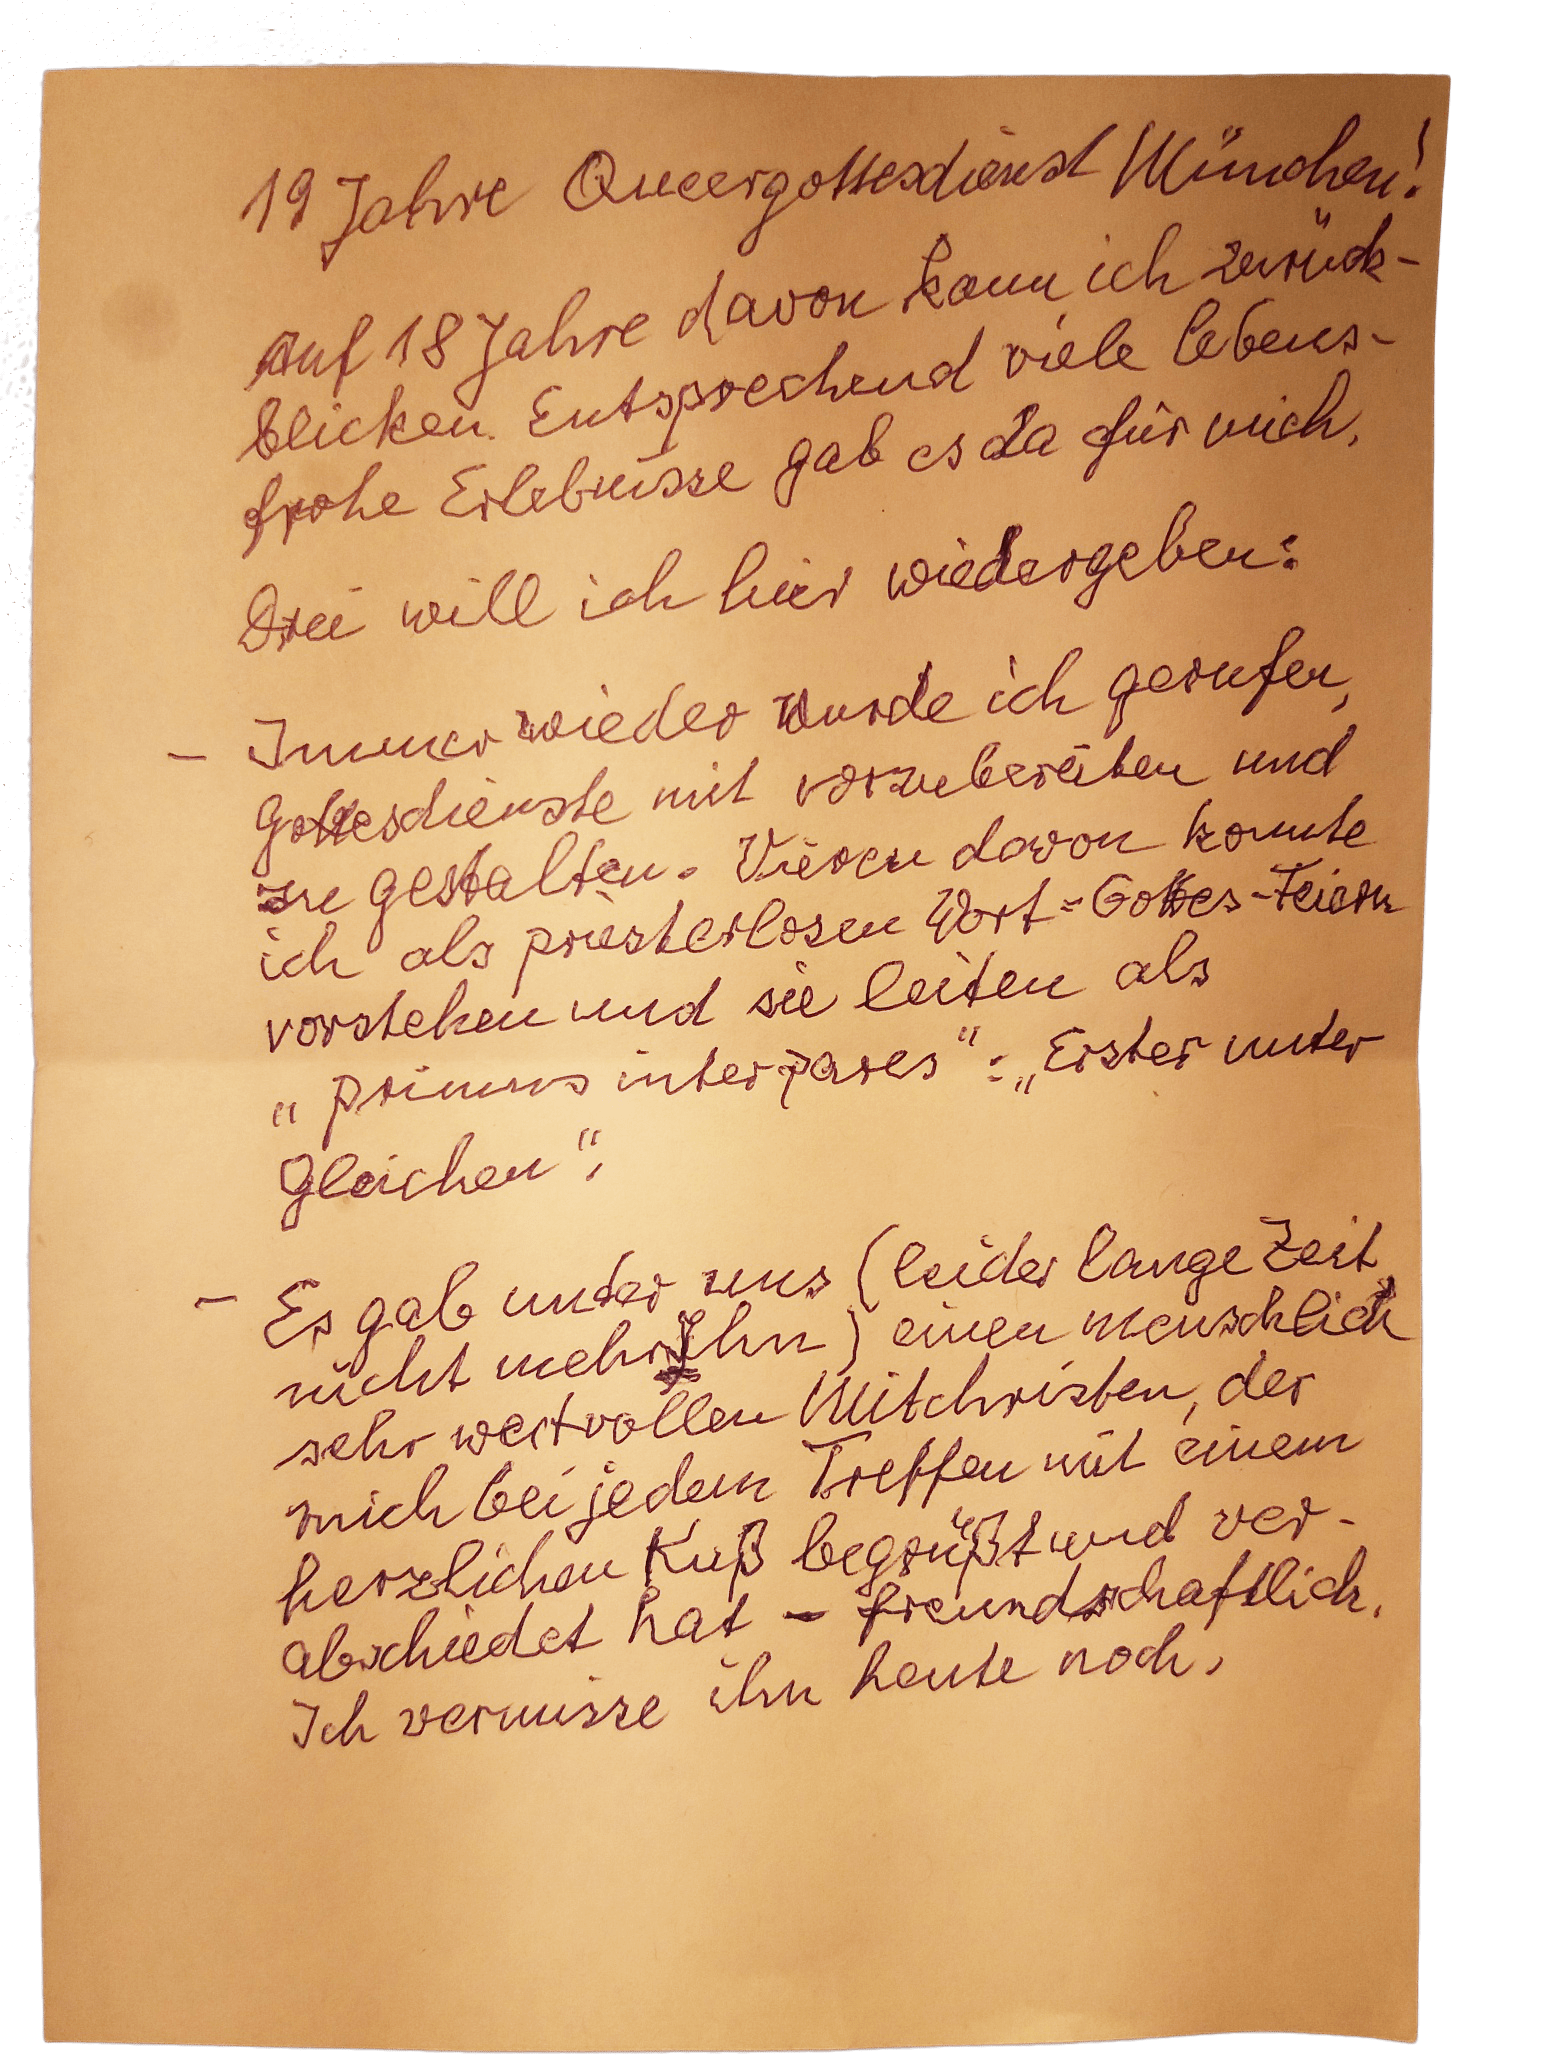 19 Jahre Queergottesdienst München!
Auf 18 Jahre davon kann ich zurück-
blicken. Entsprechend viele lebens-
frohe Erlebnisse gab es da für mich.
Drei will ich hier wiedergeben:
- Immer wieder wurde ich gerufen,
Gottesdienste mit vorzubereiten und
zu gestalten. Vieren davon konnte
ich als priesterlosen Wort-Gottes-Feiern
vorstehen und sie leiten als
„primus inter pares“: „Erster unter
Gleichen“.
- Es gab unter uns (leider lange Zeit
nicht mehr Ihn) einen menschlich
sehr wertvollen Mitchristen, der
mich bei jedem Treffen mit einem
herzlichen Kuß begrüßt und ver-
abschiedet hat - freundschaftlich.
Ich vermisse ihn heute noch.